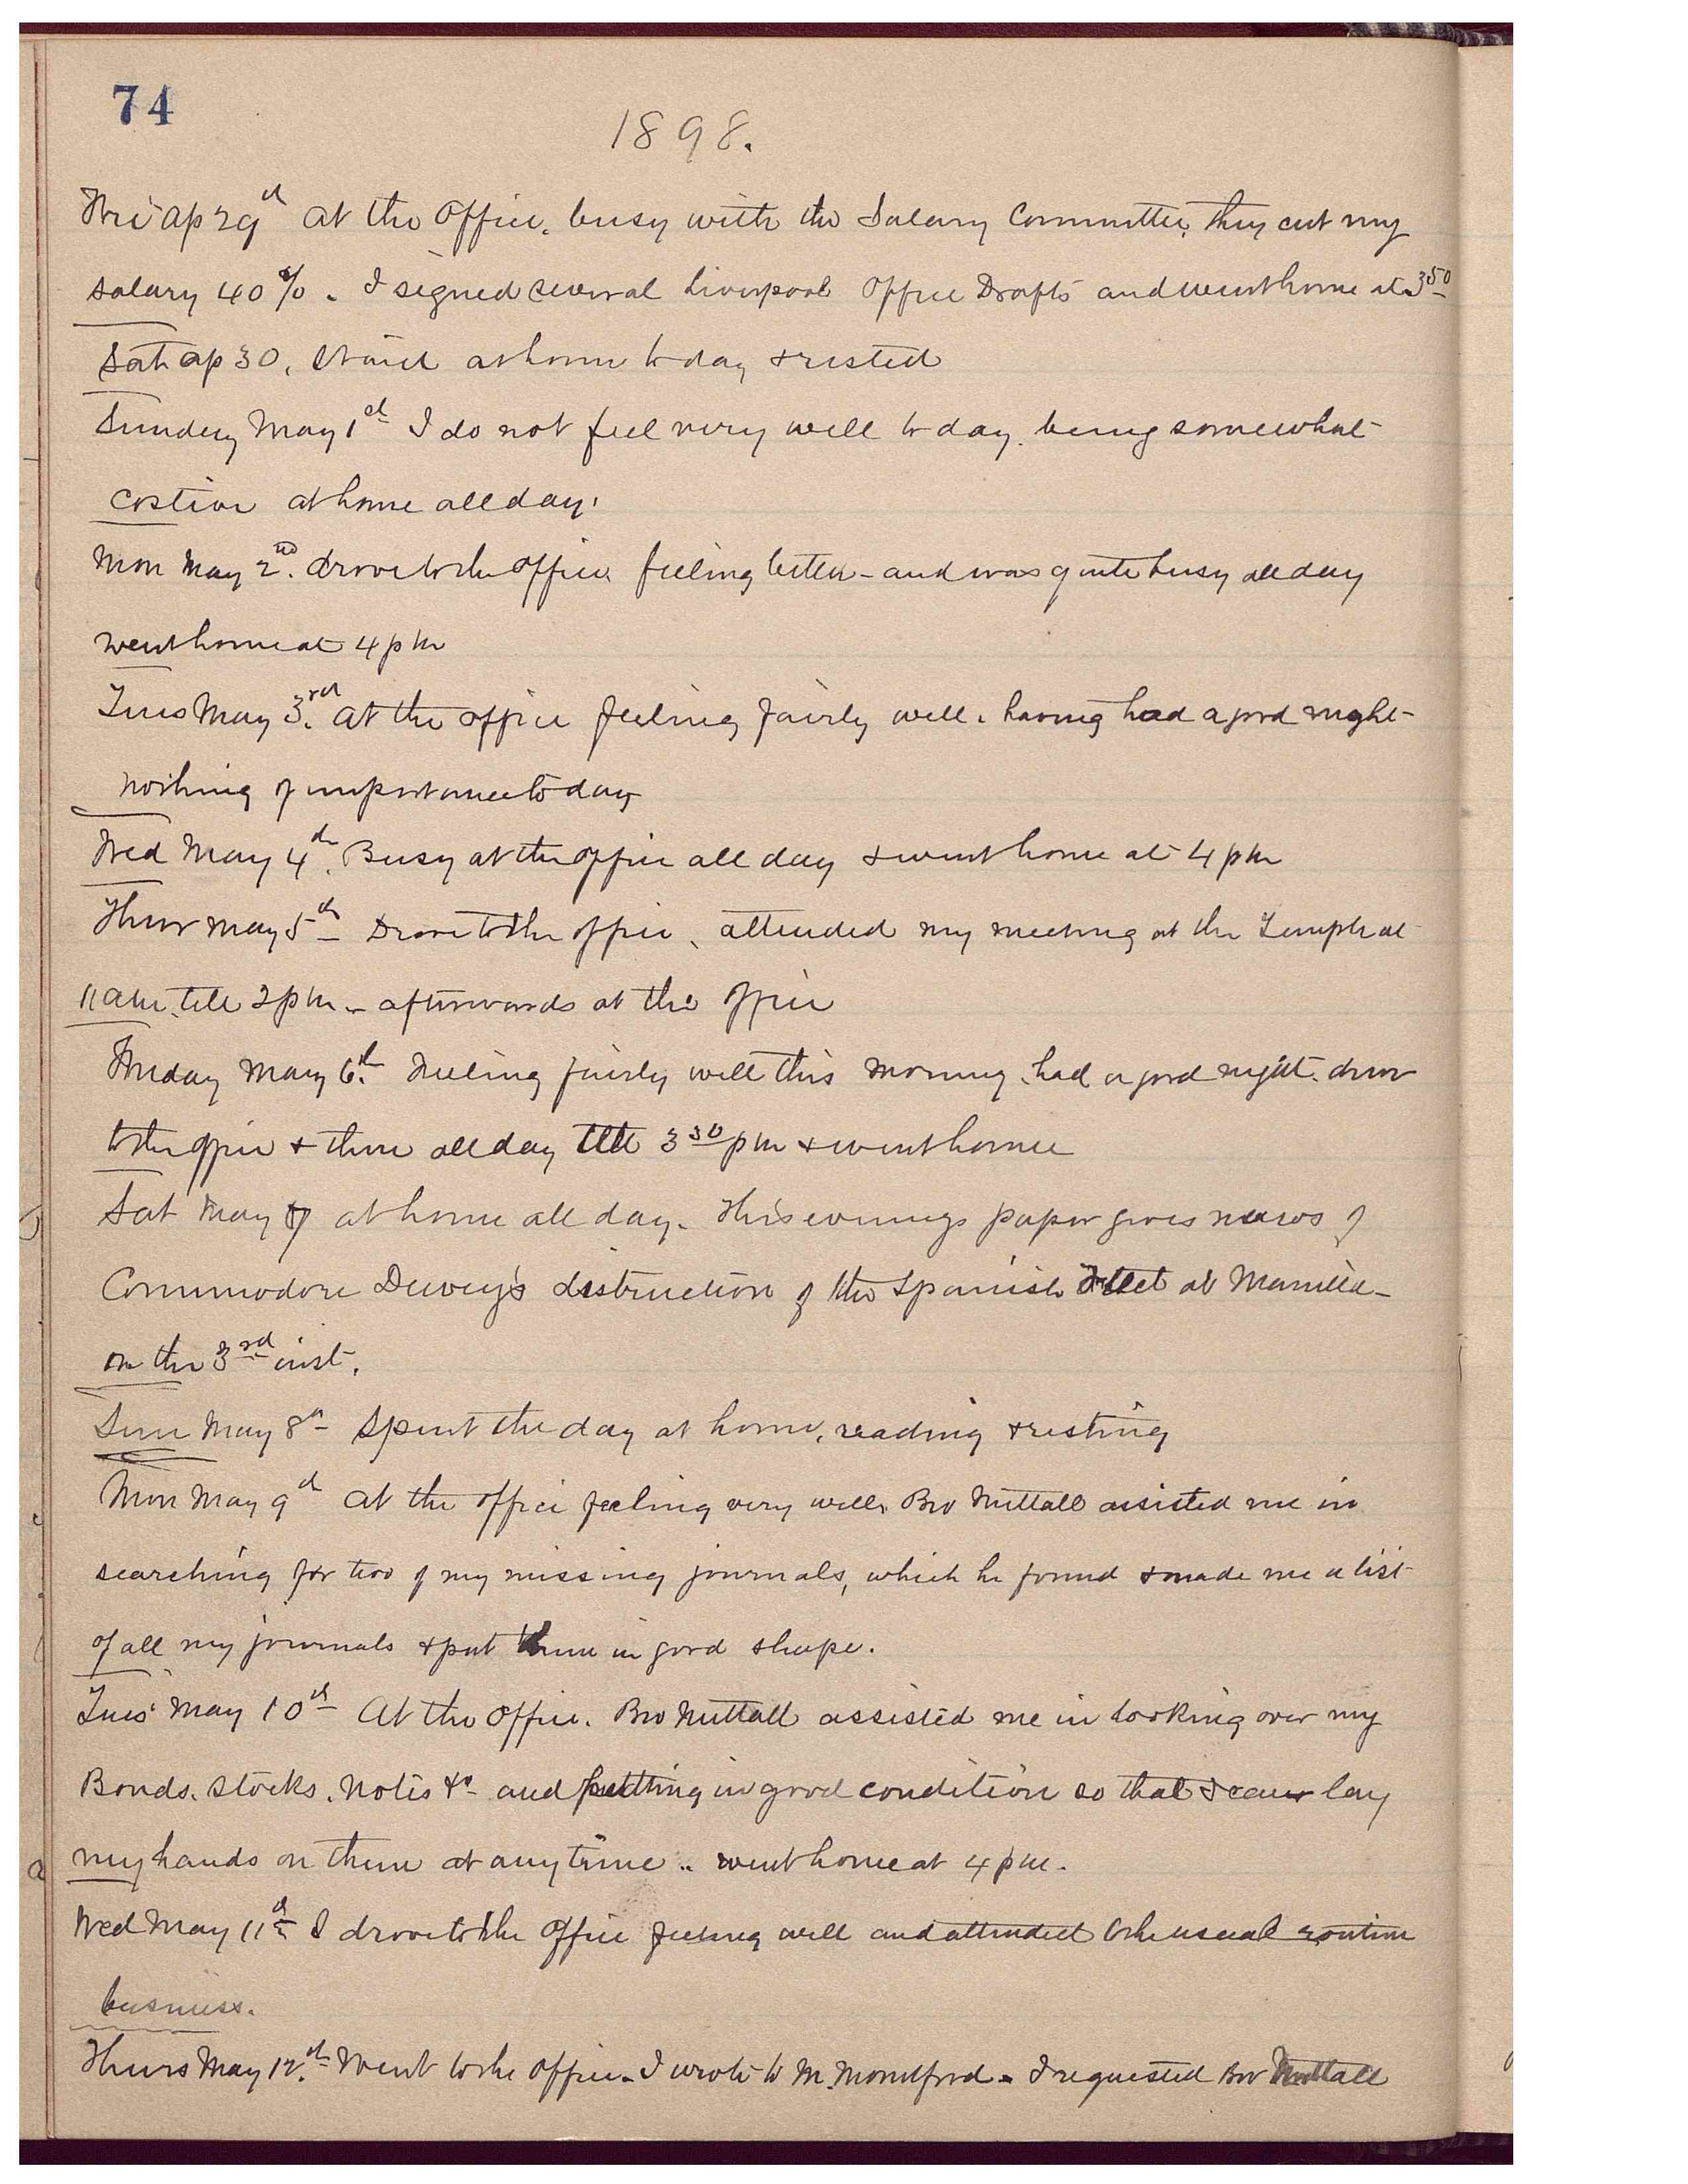 74
1898.
Fri Ap 29th At the Office. busy with the Salary Committee, they cut my
salary 40%. I signed several Liverpool Office Drafts and went home at 350
Sat Ap 30. Staid at home to day & rested
Sunday May 1st I do not feel very well to day. being somewhat
costive at home all day.
Mon May 2nd. drove to the office feeling better - and was quite busy all day
went home at 4 pm
Tues May 3rd. At the office feeling fairly well. having had a good night-
nothing of importance to day
Wed May 4th. Busy at the office all day & went home at 4 pm
Thur May 5th Drove to the office, attended my meeting at the Temple at
11 am. till 2 pm - afterwards at the office
Friday May 6th. Feeling fairly well this morning. had a good night. drove
to the office & there all day till 330 pm & went home
Sat May 7 at home all day. This evenings paper gives news of
Commodore Dewey's distruction of the Spanish Fleet at Manilla-
on the 3rd inst.
Sun May 8th Spent the day at home, reading & resting
Mon May 9th At the office feeling very well, Bro Nuttall assisted me in
searching for two of my missing journals, which he found & made me a list
of all my journals & put them in good shape.
Tues May 10th At the Office. Bro Nuttall assisted me in looking over my
Bonds. Stocks. Notes &c and putting in good condition so that I can lay
my hands on them at any time.. went home at 4 pm.
Wed May 11th I drove to the Office feeling well and attended to the usual routine
business.
Thurs May 12th. Went to the Office. I wrote to M. - I requested Bro Nuttall